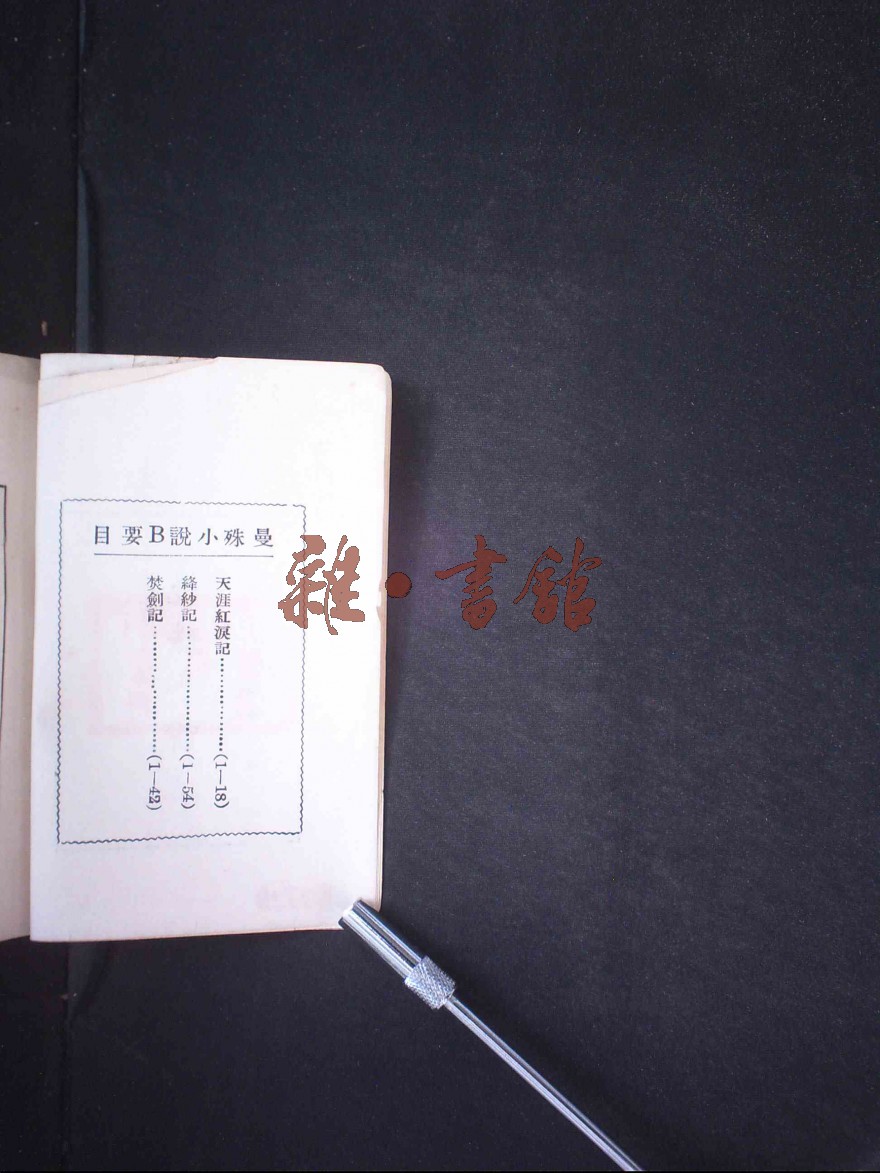 曼殊小說B要目
天涯紅淚記……………………(1—18)
絳紗記……………………(1—54)
焚劍記……………………(1—42)
雜·書館